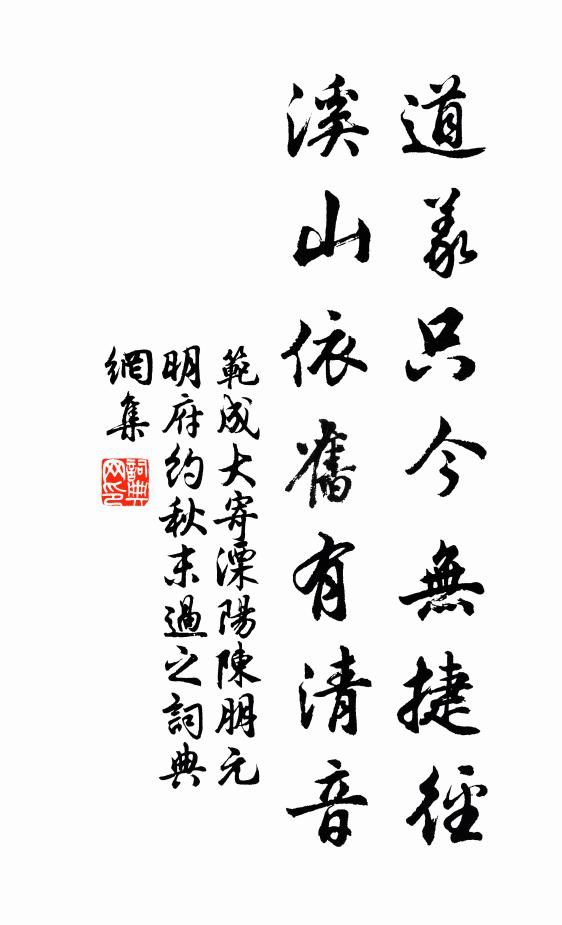 道義只今無捷徑
溪山依舊有清音
範成大寄溧陽陳朋元
明府約秋末過之詞典
網集
詞典網印